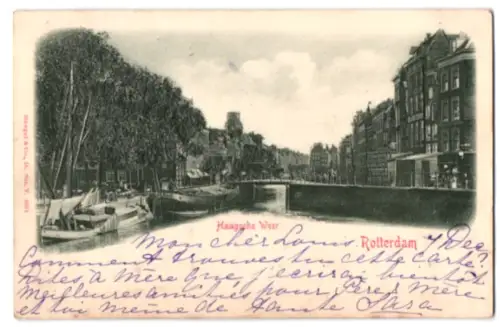 Haagsche Veer
Rotterdam
Mon cher Louis 7 Dec.
Comment trouves tu cette carte?
Dites à mère que j'ecrirai bientôt
Meilleures amitiés pour Père, mère
et toi même de tante Sara